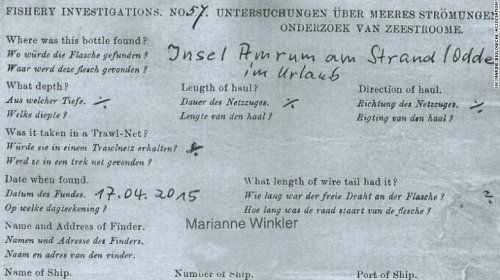 FISHERY INVESTIGATIONS. NO 57. UNTERSUCHUNGEN ÜBER MEERES STRÖMUNGE
ONDERZOEK VAN ZEESTROOME.
Where was this bottle found?
Wo würde die Flasche gefunden? Insel Amrum am Strand/Odde
Waar werd deze flesch gevonden? im Urlaub
What depth? Length of haul? Direction of haul.
Aus welcher Tiefe. ÷ Dauer des Netzzuges. ÷ Richtung des Netzzuges. ÷
Welke diepte? Lengte van den haal? Rigting van den haal?
Was it taken in a Trawl-Net?
Würde sie in einem Trawlnetz erhalten? ÷
Werd ze in een trek net gevonden?
Date when found. What length of wire tail had it?
Datum des Fundes. 17.04.2015 Wie lang war der freie Draht an der Flasche? ?
Op welke dagteekening? Hoe lang was de raad staart van de flesche?
Name and Address of Finder. Marianne Winkler
Namen und Adresse des Finders.
Naam en adres van den vinder.
Name of Ship. Number of Ship. Port of Ship.